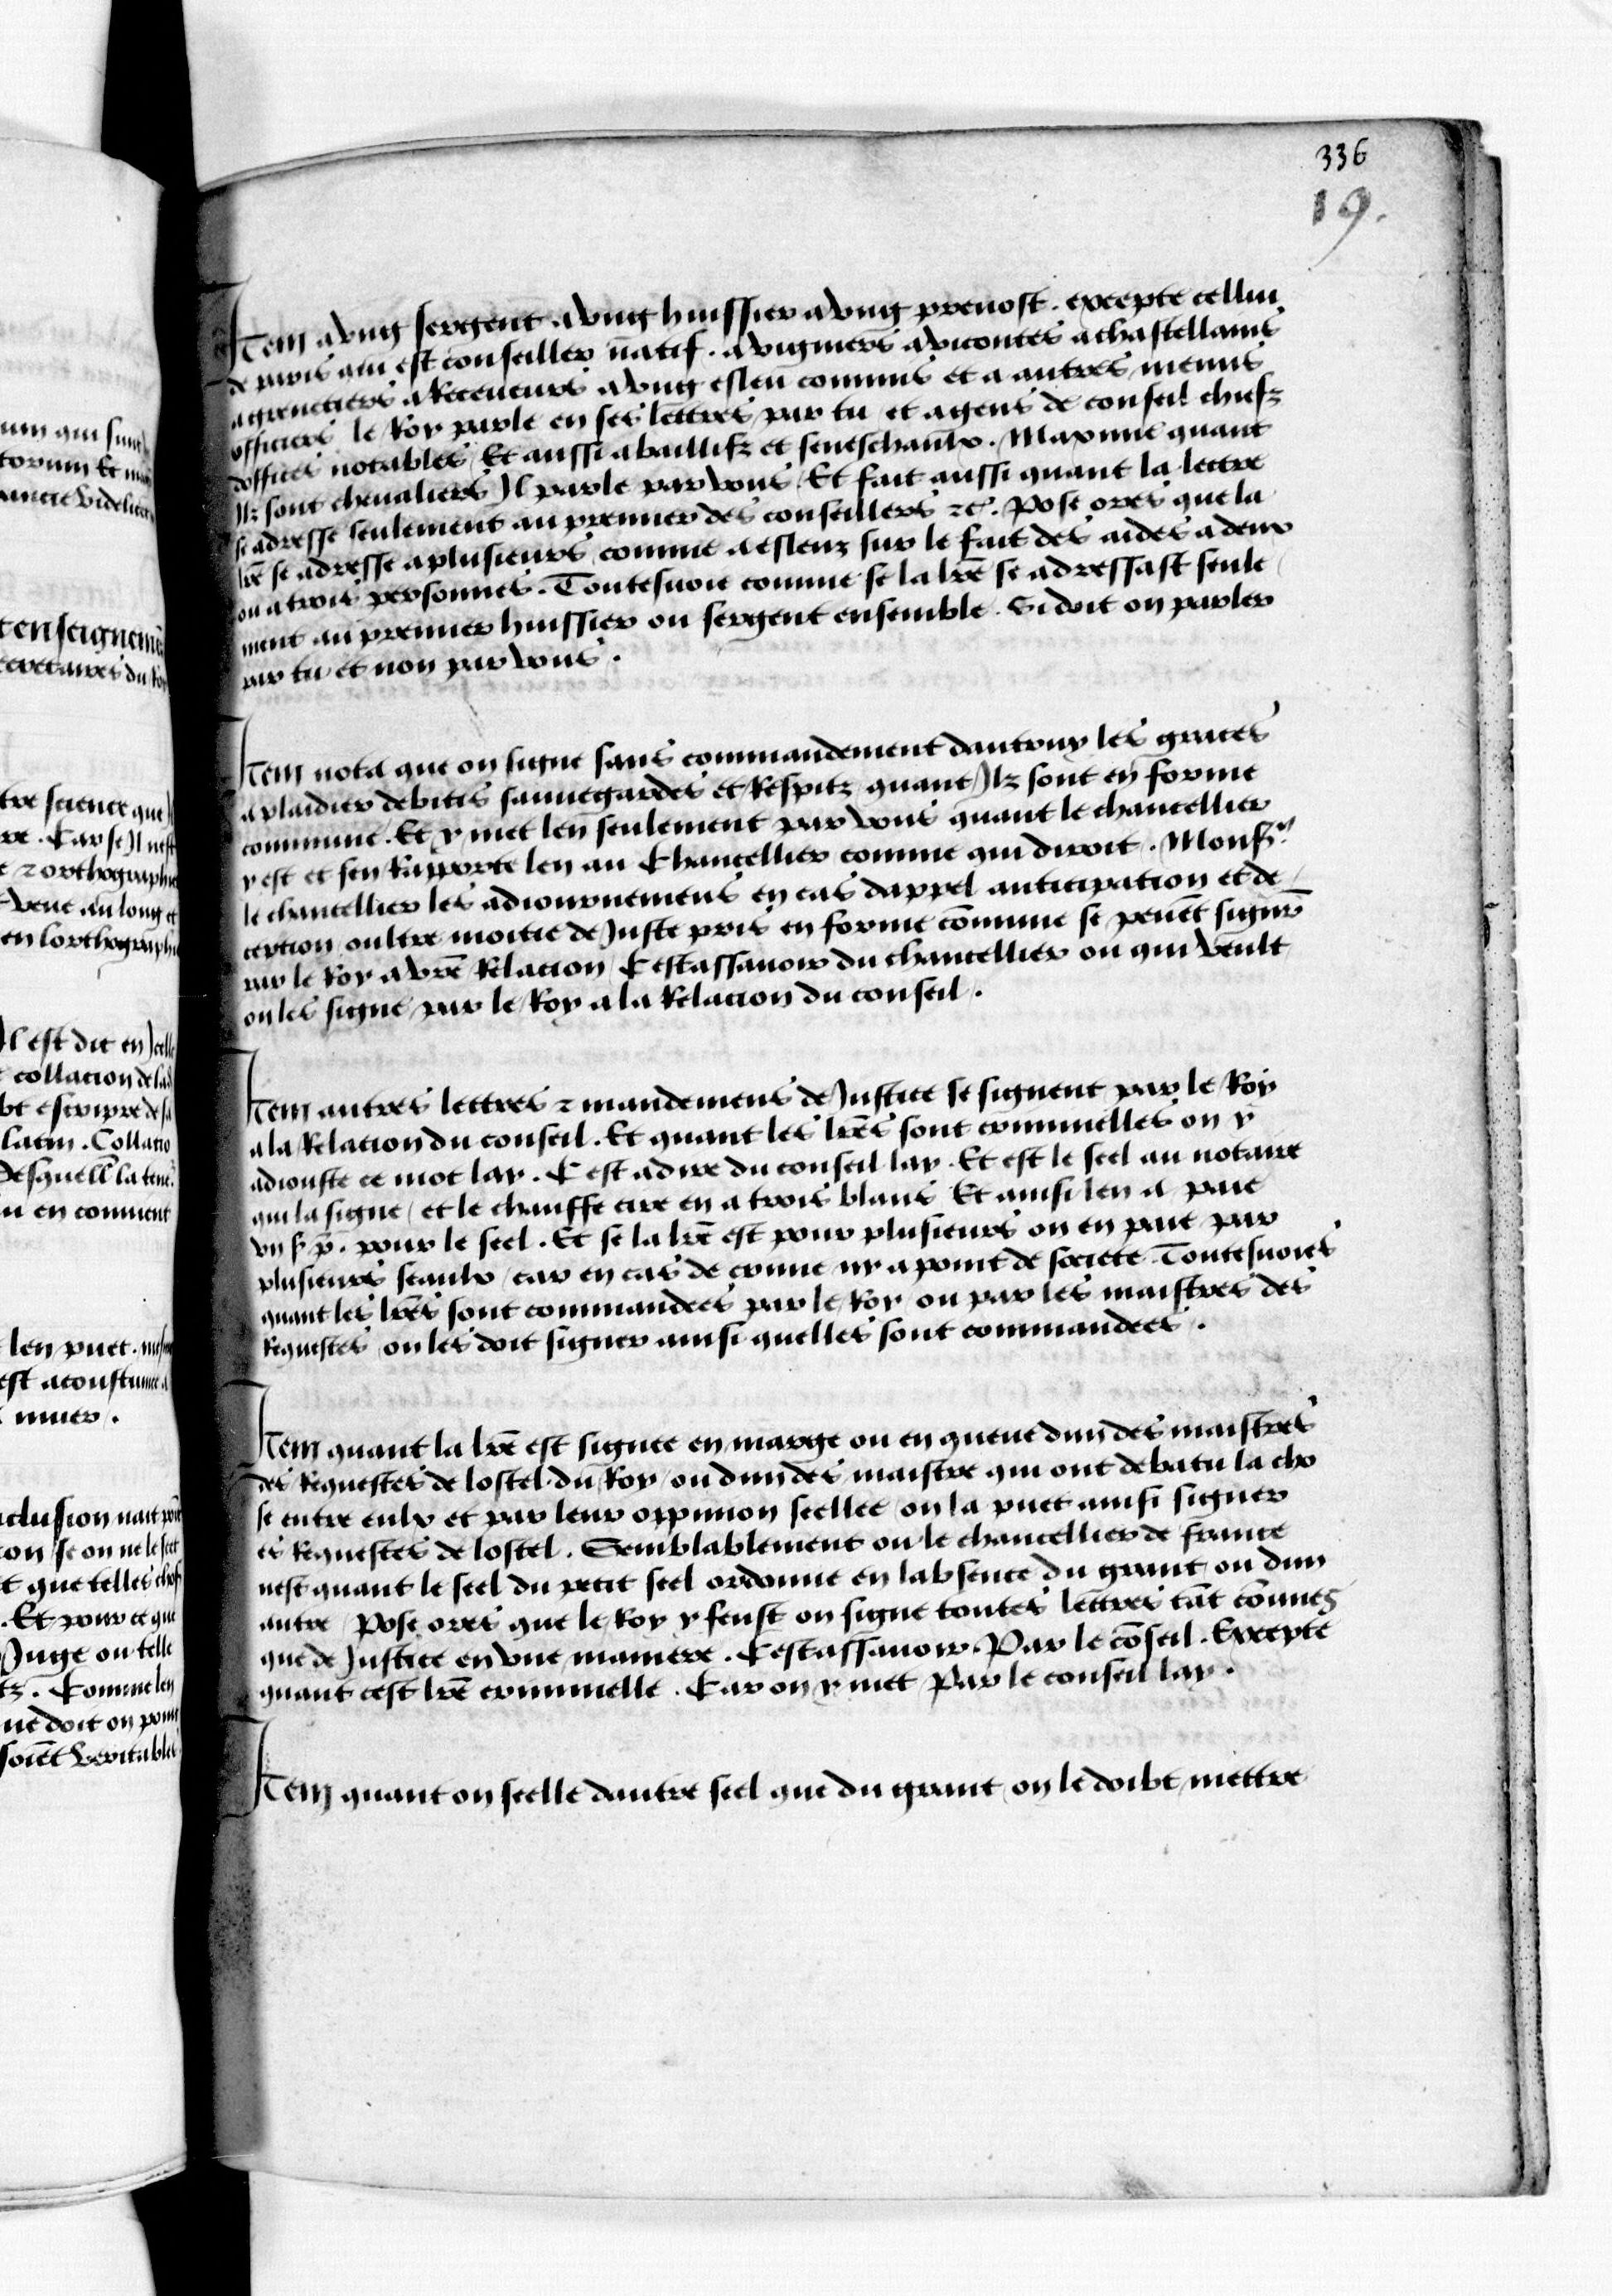 336
19.
Item a vng sergent a vng huissier a vng preuost . excepte cellui
de paris qui est conseiller natif . a viguiers a vicontes a chastellains
a grenetiers a Receueurs a vng esleu commis et a autres menus
officiers le Roy parle en ses lettres par tu et a gens de conseil chiefz
doffices notables Et aussi a baillifz et seneschaulx . Maxime quant
Ilz sont cheualiers Il parle par vous Et fait aussi quant la lettre
se adresse seulement au premier des conseillers &c. Pose ores que la
lre se adresse a plusieurs comme a esleuz sur le fait des aides a deux
ou a trois personnes . Toutesuoie comme se la lre se adressast seule
ment au premier huissier ou sergent ensemble . Si doit on parler
par tu et non par vous .
Item nota que on signe sans commandement dautruy les graces
a plaidier debitis sauuegardes et Respitz quant Ilz sont en forme
commune . Et y met len seulement par vous quant le chancellier
y est et sen Rapporte len au Chancellier comme qui diroit . Monsr
le chancellier les adiournemens en cas dappel anticipation et de
ception oultre moitie de Juste pris en forme commune se peuent signer
par le Roy a vre Relacion Cestassauoir du chancellier ou qui veult
on les signe par le Roy a la Relacion du conseil .
Item autres lettres & mandemens de Justice se signent par le Roy
a la Relacion du conseil . Et quant les lres sont criminelles on y
adiouste ce mot lay . Cest adire du conseil lay . Et est le seel au notaire
qui la signe et le chauffe cire en a trois blans Et ainsi len a paie
vj s p . pour le seel . Et se la lre est pour plusieurs on en paie par
plusieurs seaulx car en cas de crime ny a point de societe . Toutesuoies
quant les lres sont commandees par le Roy ou par les maistres des
Requestes on les doit signer ainsi quelles sont commandees .
Item quant la lre est signee en marge ou en queue dun des maistres
des Requestes de lostel du Roy ou dun des maistre qui ont debatu la cho
se entre eulx et par leur oppinion seellee on la puet ainsi signer
es Requestes de lostel . Semblablement ou le chancellier de france
nest quant le seel du petit seel ordonne en labsence du grant ou dun
autre Pose ores que le Roy y feust on signe toutes lettres tat counes
que de Justice en vne maniere . Cestassauoir Par le coseil . Excepte
quant cest lre criminelle . Car on y met Par le conseil lay .
Item quant on seelle dautre seel que du grant on le doibt mettre